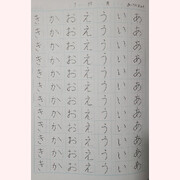 あああああああああああ
いいいいいいいいいいい
ううううううううううう
えええええええええええ
おおおおおおおおおおお
かかかかかかかかかかか
きききききききききききき